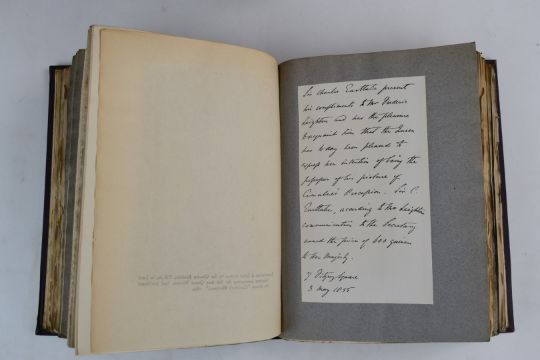 Sir Charles Eastlake present
his compliments to Mr Frederic
Leighton and has the pleasure
to acquaint him that the Queen
has to day been pleased to
express her intention of being the
possessor of his picture of
Cimabue's Procession. Sir C.
Eastlake, according to Mr Leighton's
communication to the Secretary
named the price of 600 guineas
to Her Majesty.
7 Fitzroy Square
3 May 1855